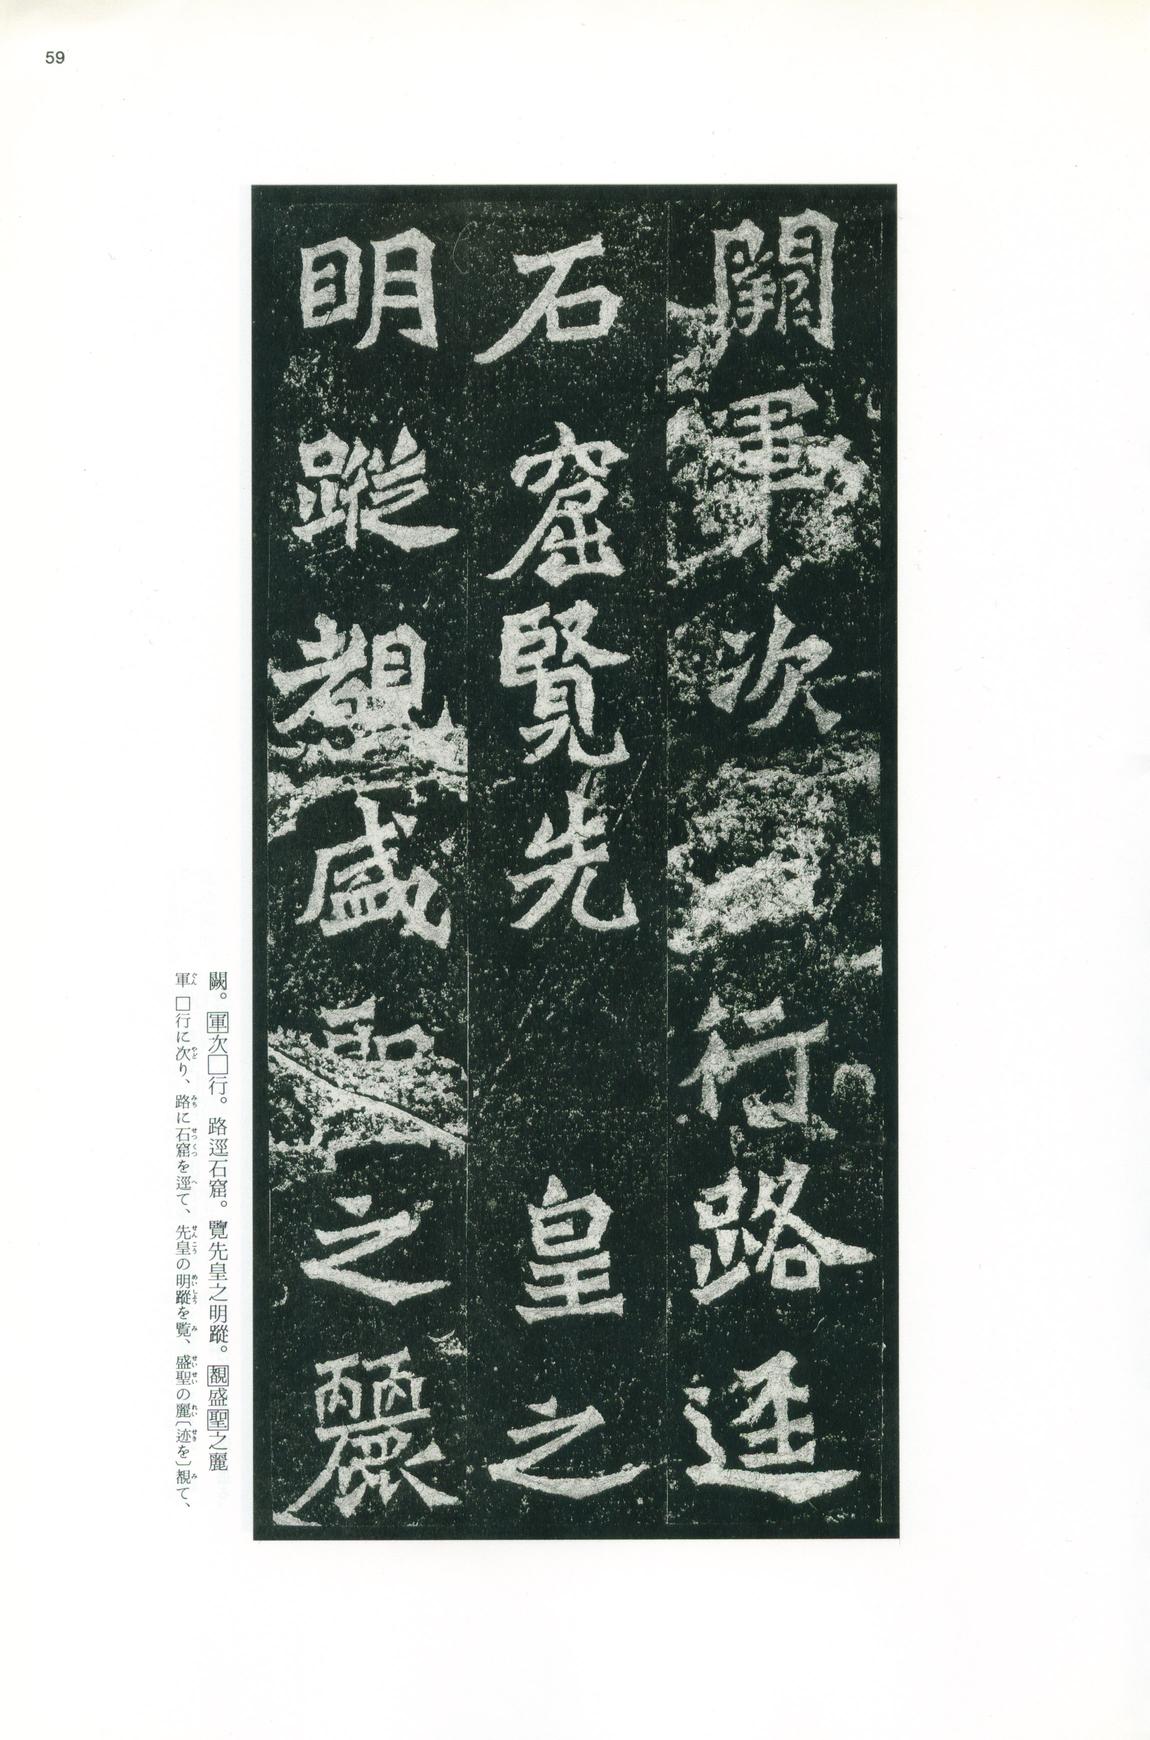 59
闕軍次行路逕
石窟覽先皇之
明蹤覩盛聖之麗
闕。軍次□行。路逕石窟。覽先皇之明蹤。覩盛聖之麗
軍□行に次り、路に石窟を逕て、先皇の明蹤を覧、盛聖の麗〔迹を〕覩て、